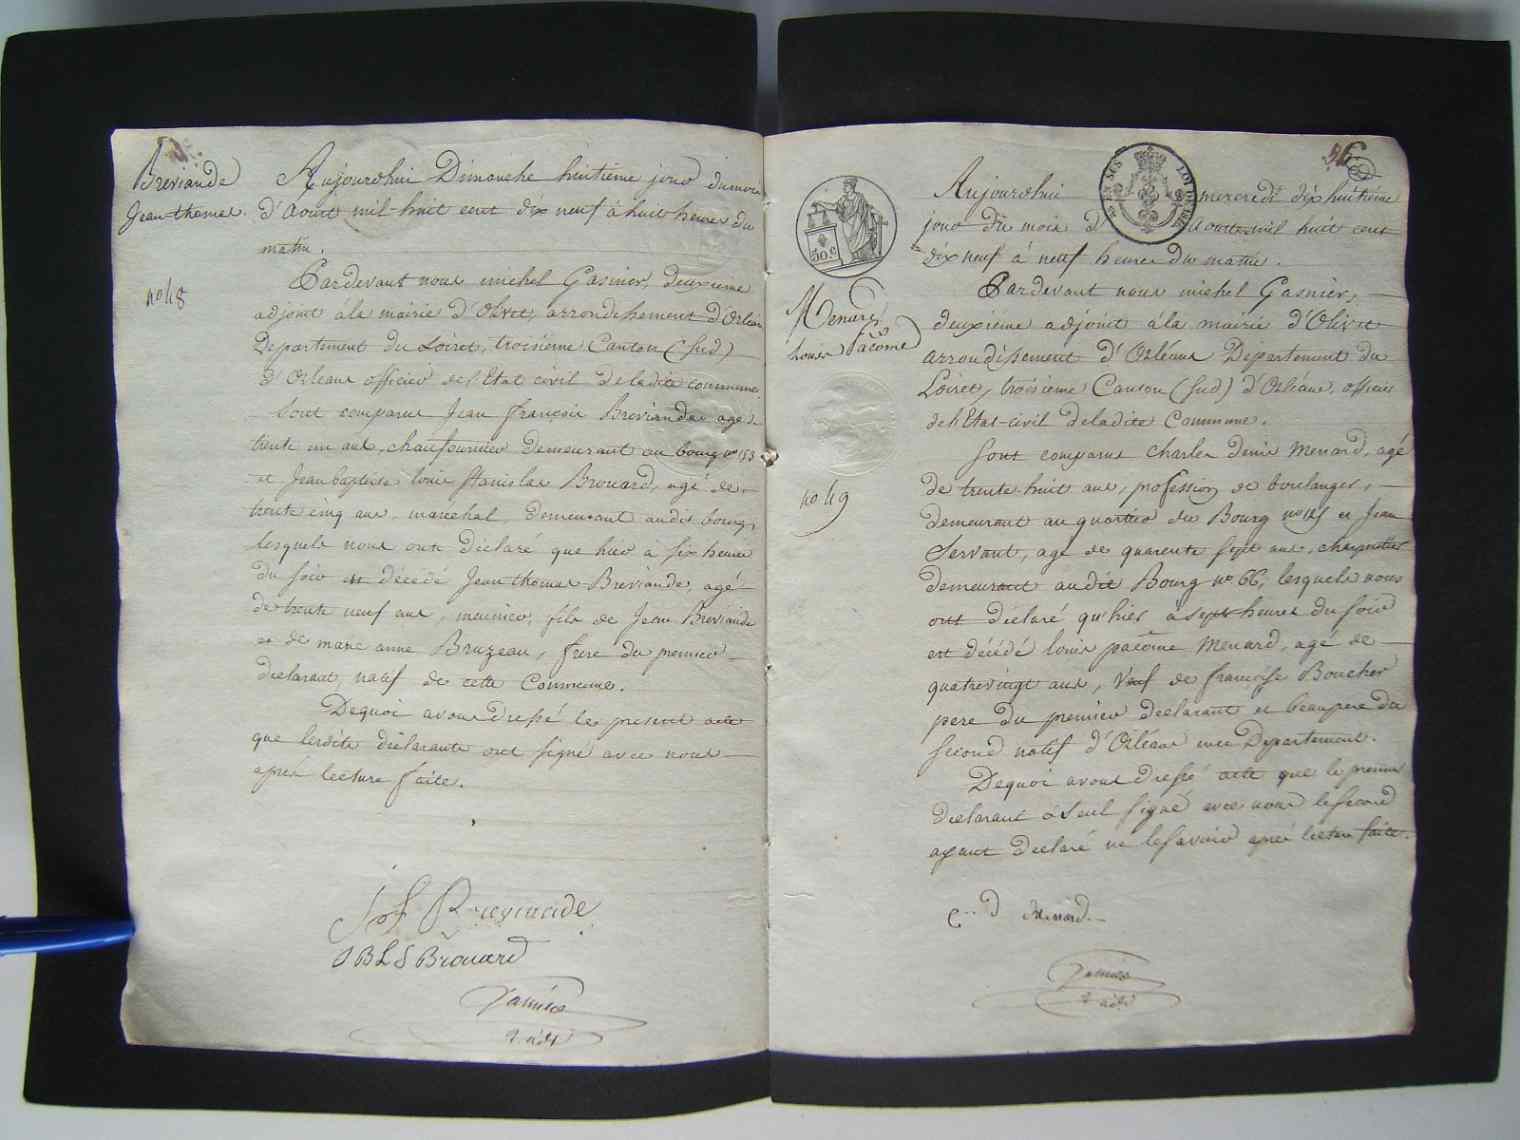 Breviande
Jean thomas.
no 48
Aujourdhui Dimanche huitieme jour du mois
d'aout mil-huit cent dix neuf à huit heures du
matin.
Pardevant nous michel Gasnier, deuxieme
adjoint à la mairie d'Olivet, arrondissement d'Orléans
Departement du Loiret, troisième Canton (Sud)
d'Orléans officier de l'Etat civil de ladite commune
Sont comparus Jean françois Breviande agé de
trente un ans, chaufournier demeurant au bourg no 153
et Jean baptiste louis Stanislas Brouard, agé de
trente cinq ans, marechal, demeurant audit bourg,
lesquels nous ont déclaré que hier à six heures
du soir est décédé Jean thomas Breviande, agé
de trente neuf ans, meunier, fils de Jean Breviande
et de marie anne Bruzeau, frere du premier
declarant, natif de cette Commune.
Dequoi avons dressé le present acte
que lesdits déclarants ont signé avec nous
après lecture faite.
J f Breviande
J B L S Brouard
Gasnier
adjt
50 c
BIEN SUS LOI DE 1816
26
Menard
Louis Pacôme
no 49
Aujourdhui mercredi dix huitieme
jour du mois d'Aout mil huit cent
dix neuf à neuf heures du matin.
Pardevant nous michel Gasnier,
deuxième adjoint à la mairie d'Olivet
arrondissement d'Orléans Département du
Loiret, troisieme Canton (Sud) d'Orléans, officier
de l'Etat-civil de ladite Commune.
Sont comparus Charles Denis Menard, agé
de trente-huit ans, profession de boulanger,
demeurant au quartier du Bourg no 125 et Jean
Servant, agé de quarente sept ans, charpentier
demeurant audit Bourg no 66, lesquels nous
ont déclaré qu'hier à sept heures du soir
est décédé louis pacôme Menard, agé de
quatrevingt ans, Veuf de françoise Boucher
pere du premier declarant et beaupere du
second natif d'Orléans meme Departement.
Dequoi avons dressé acte que le premier
declarant a seul signé avec nous le second
ayant déclaré ne le savoir après lecture faite.
C.. D Menard
Gasnier
adjt